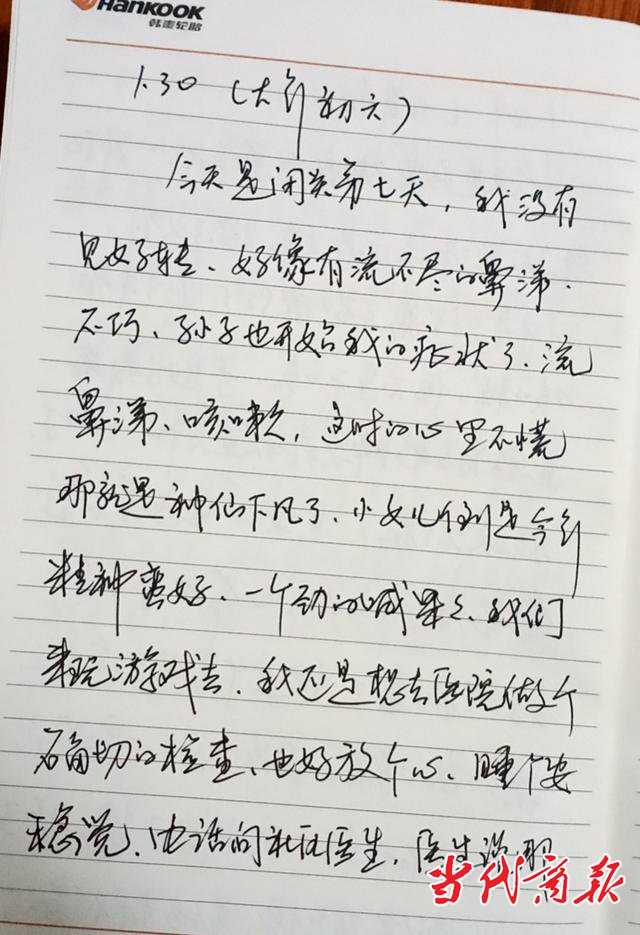 Hankook
韩泰轮胎
1.30（大年初六）
今天是闭关第七天，我没有
见好转、好像有流不尽的鼻涕.
不巧、孙子也开始我的症状了、流
鼻涕、咳嗽，这时的心里不慌
那就是神仙下凡了、小女儿倒是今年
精神蛮好、一个劲的喊果果、我们
来玩游戏去、我还是想去医院做个
确切的检查、也好放个心、睡个安
稳觉、电话问社区医生，医生说现
当代商报